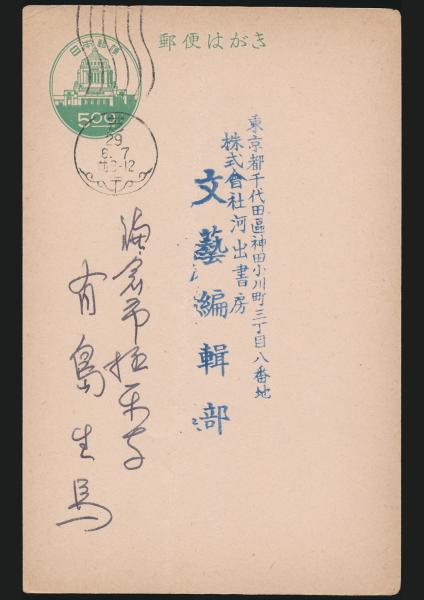 郵便はがき
日本郵便
5.00
29
6.7
東京都千代田區神田小川町三丁目八番地
株式會社河出書房
文藝編輯部
鎌倉市極楽寺
有島生馬